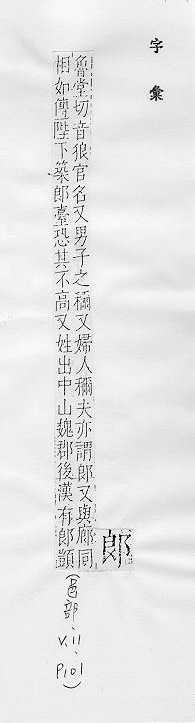 字彙
郎
魯堂切音狼官名又男子之穪又婦人穪夫亦謂郎又與廊同
相如傳陛下築郎臺恐其不高又姓出中山魏郡後漢有郎顗
(邑部、V.11、P101)